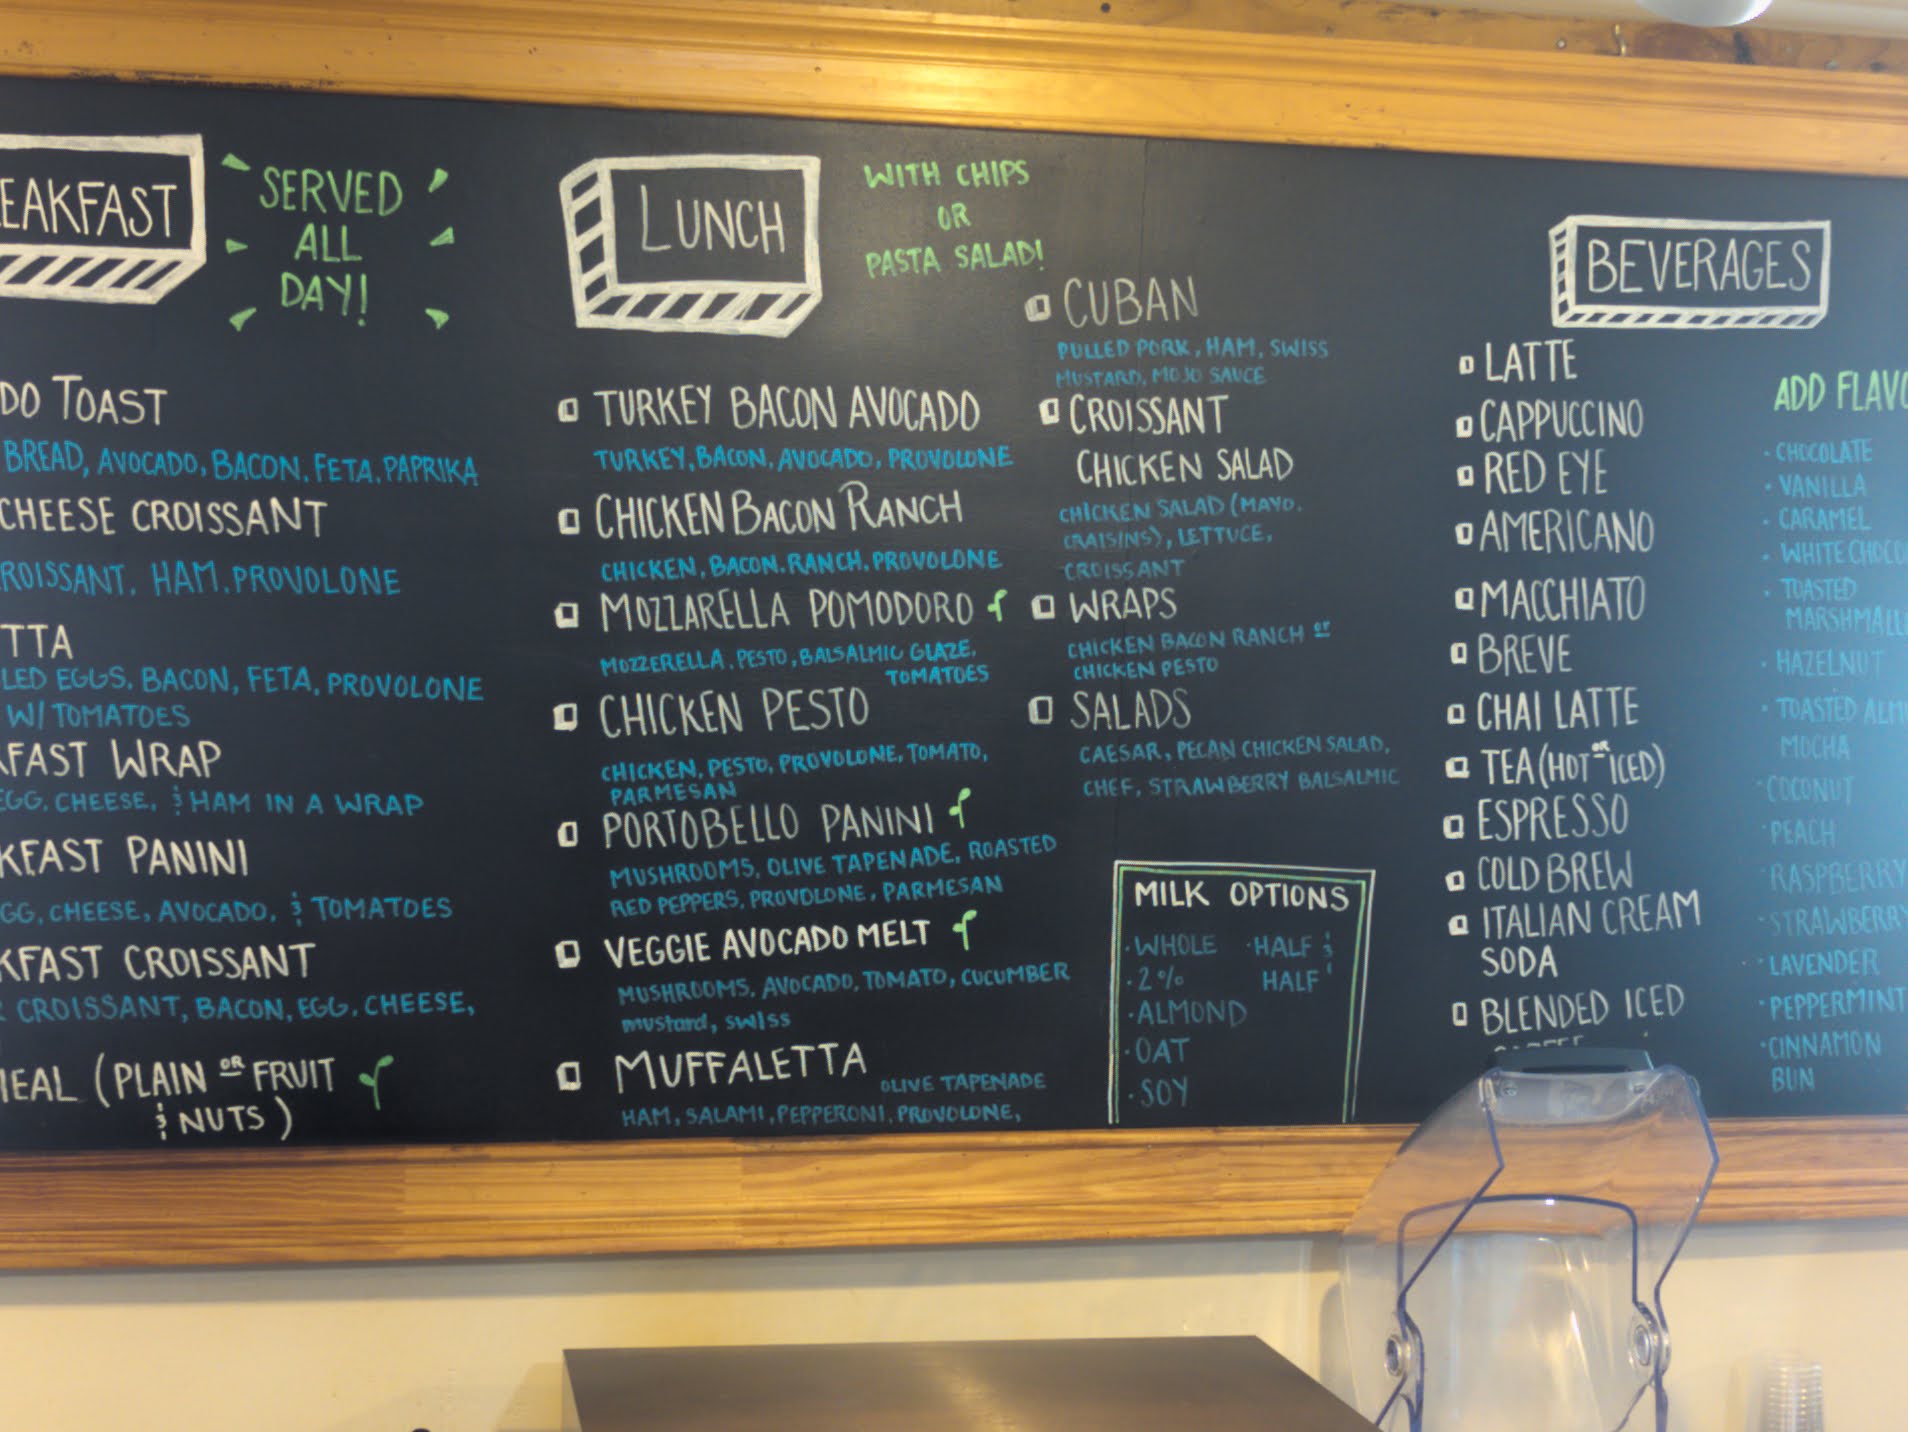 EAKFAST
SERVED
ALL
DAY!
DO TOAST
BREAD, AVOCADO, BACON, FETA, PAPRIKA
CHEESE CROISSANT
ROISSANT, HAM, PROVOLONE
TTA
LED EGGS, BACON, FETA, PROVOLONE
W/ TOMATOES
FAST WRAP
EGG, CHEESE, & HAM IN A WRAP
KFAST PANINI
GG, CHEESE, AVOCADO, & TOMATOES
KFAST CROISSANT
CROISSANT, BACON, EGG, CHEESE,
MEAL (PLAIN OR FRUIT
& NUTS)
LUNCH
WITH CHIPS
OR
PASTA SALAD!
TURKEY BACON AVOCADO
TURKEY, BACON, AVOCADO, PROVOLONE
CHICKEN BACON RANCH
CHICKEN, BACON, RANCH, PROVOLONE
MOZZARELLA POMODORO
MOZZERELLA, PESTO, BALSALMIC GLAZE,
TOMATOES
CHICKEN PESTO
CHICKEN, PESTO, PROVOLONE, TOMATO,
PARMESAN
PORTOBELLO PANINI
MUSHROOMS, OLIVE TAPENADE, ROASTED
RED PEPPERS, PROVOLONE, PARMESAN
VEGGIE AVOCADO MELT
MUSHROOMS, AVOCADO, TOMATO, CUCUMBER
mustard, swiss
MUFFALETTA
OLIVE TAPENADE
HAM, SALAMI, PEPPERONI, PROVOLONE,
CUBAN
PULLED PORK, HAM, SWISS
MUSTARD, MOJO SAUCE
CROISSANT
CHICKEN SALAD
CHICKEN SALAD (MAYO,
CRAISINS), LETTUCE,
CROISSANT
WRAPS
CHICKEN BACON RANCH or
CHICKEN PESTO
SALADS
CAESAR, PECAN CHICKEN SALAD,
CHEF, STRAWBERRY BALSALMIC
MILK OPTIONS
· WHOLE
· 2%
· ALMOND
· OAT
· SOY
· HALF &
HALF
BEVERAGES
LATTE
CAPPUCCINO
RED EYE
AMERICANO
MACCHIATO
BREVE
CHAI LATTE
TEA (HOT OR ICED)
ESPRESSO
COLD BREW
ITALIAN CREAM
SODA
BLENDED ICED
ADD FLAVO
· CHOCOLATE
· VANILLA
· CARAMEL
· WHITE CHOCO
· TOASTED
MARSHMALL
· HAZELNUT
· TOASTED ALM
MOCHA
· COCONUT
· PEACH
· RASPBERRY
· STRAWBERRY
· LAVENDER
· PEPPERMINT
· CINNAMON
BUN